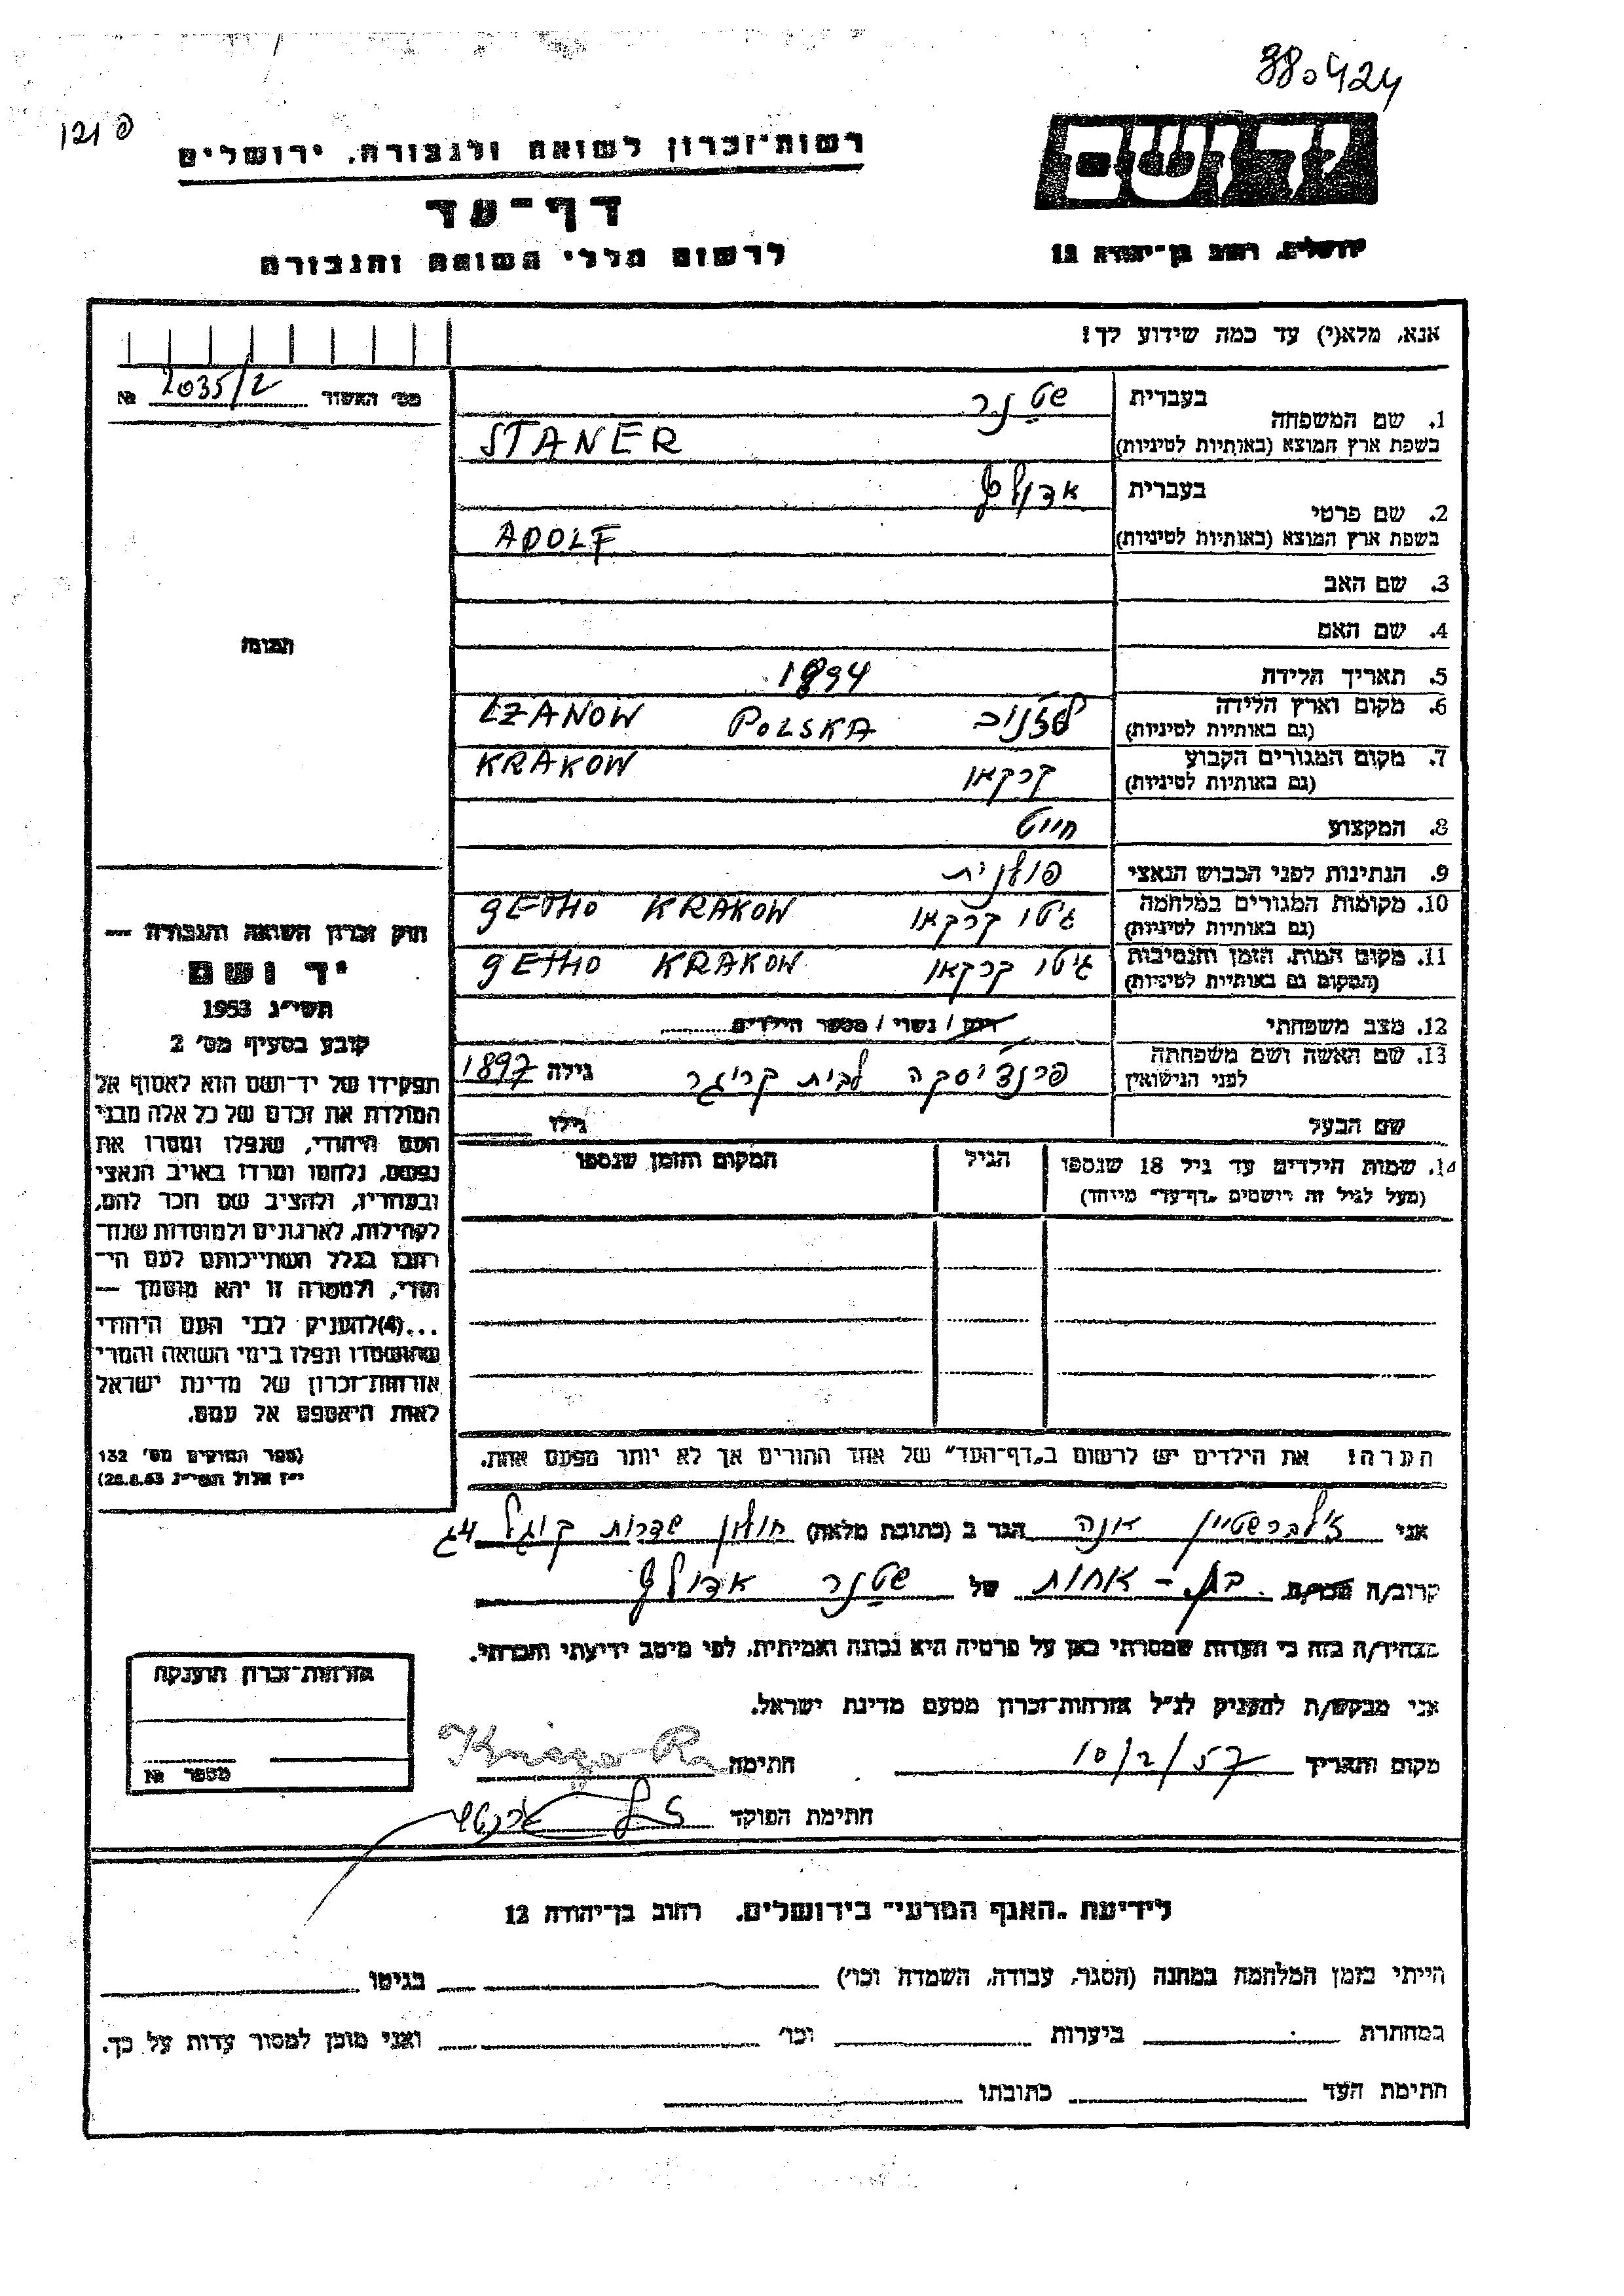 38.424
פ 121
יד ושם
רשות־זכרון לשואה ולגבורה, ירושלים
ירושלים, רחוב בן־יהודה 12
דף־עד
לרשום חללי השואה והגבורה
אנא, מלא(י) עד כמה שידוע לך!
מס׳ האשור 2035/2 №
בעברית שטנר
1. שם המשפחה
בשפת ארץ המוצא (באותיות לטיניות) STANER
בעברית אדולף
2. שם פרטי
בשפת ארץ המוצא (באותיות לטיניות) ADOLF
3. שם האב
4. שם האם
תמונה
5. תאריך הלידה 1894
6. מקום וארץ הלידה
(גם באותיות לטיניות) POLSKA LZANOW
7. מקום המגורים הקבוע
(גם באותיות לטיניות) קרקאו KRAKOW
8. המקצוע חייט
9. הנתינות לפני הכבוש הנאצי פולנית
10. מקומות המגורים במלחמה
(גם באותיות לטיניות) גיטו קרקאו GETHO KRAKOW
11. מקום המות, הזמן והנסיבות
(המקום גם באותיות לטיניות) גיטו קרקאו GETHO KRAKOW
12. מצב משפחתי רווק / נשוי / מספר הילדים
13. שם האשה ושם משפחתה
לפני הנישואין פרנציסקה לבית קריגר גילה 1897
שם הבעל גילו
14. שמות הילדים עד גיל 18 שנספו הגיל המקום והזמן שנספו
(מעל לגיל זה רושמים „דף־עד” מיוחד)
חוק זכרון השואה והגבורה —
יד ושם
תשי״ג 1953
קובע בסעיף מס׳ 2
תפקידו של יד־ושם הוא לאסוף אל
המולדת את זכרם של כל אלה מבני
העם היהודי, שנפלו ומסרו את
נפשם, נלחמו ומרדו באויב הנאצי
ובעוזריו, ולהציב שם וזכר להם,
לקהילות, לארגונים ולמוסדות שנח־
רבו בגלל השתייכותם לעם הי־
הודי, ולמטרה זו יהא מוסמך —
...(4)להעניק לבני העם היהודי
שהושמדו ונפלו בימי השואה והמרי
אזרחות־זכרון של מדינת ישראל
לאות היאספם אל עמם.
(ספר החוקים מס׳ 132
י״ז אלול תשי״ג 28.8.53)
הערה! את הילדים יש לרשום ב„דף־העד” של אחד ההורים אך לא יותר מפעם אחת.
אני זילברשטיין אנה הגר ב (כתובת מלאה) חולון שדרות קוגל 4ג
קרוב/ה מכר/ה בת - אחות של שטנר אדולף
מצהיר/ה בזה כי העדות שמסרתי כאן על פרטיה היא נכונה ואמיתית, לפי מיטב ידיעתי והכרתי.
אני מבקש/ת להעניק לנ״ל אזרחות־זכרון מטעם מדינת ישראל.
מקום ותאריך 10/2/57 חתימה
חתימת הפוקד
אזרחות־זכרון הוענקה
מספר №
לידיעת „האגף המדעי” בירושלים, רחוב בן־יהודה 12
הייתי בזמן המלחמה במחנה (הסגר, עבודה, השמדה וכו׳) בגיטו
במחתרת ביערות וכו׳ ואני מוכן למסור עדות על כך.
חתימת העד כתובתו